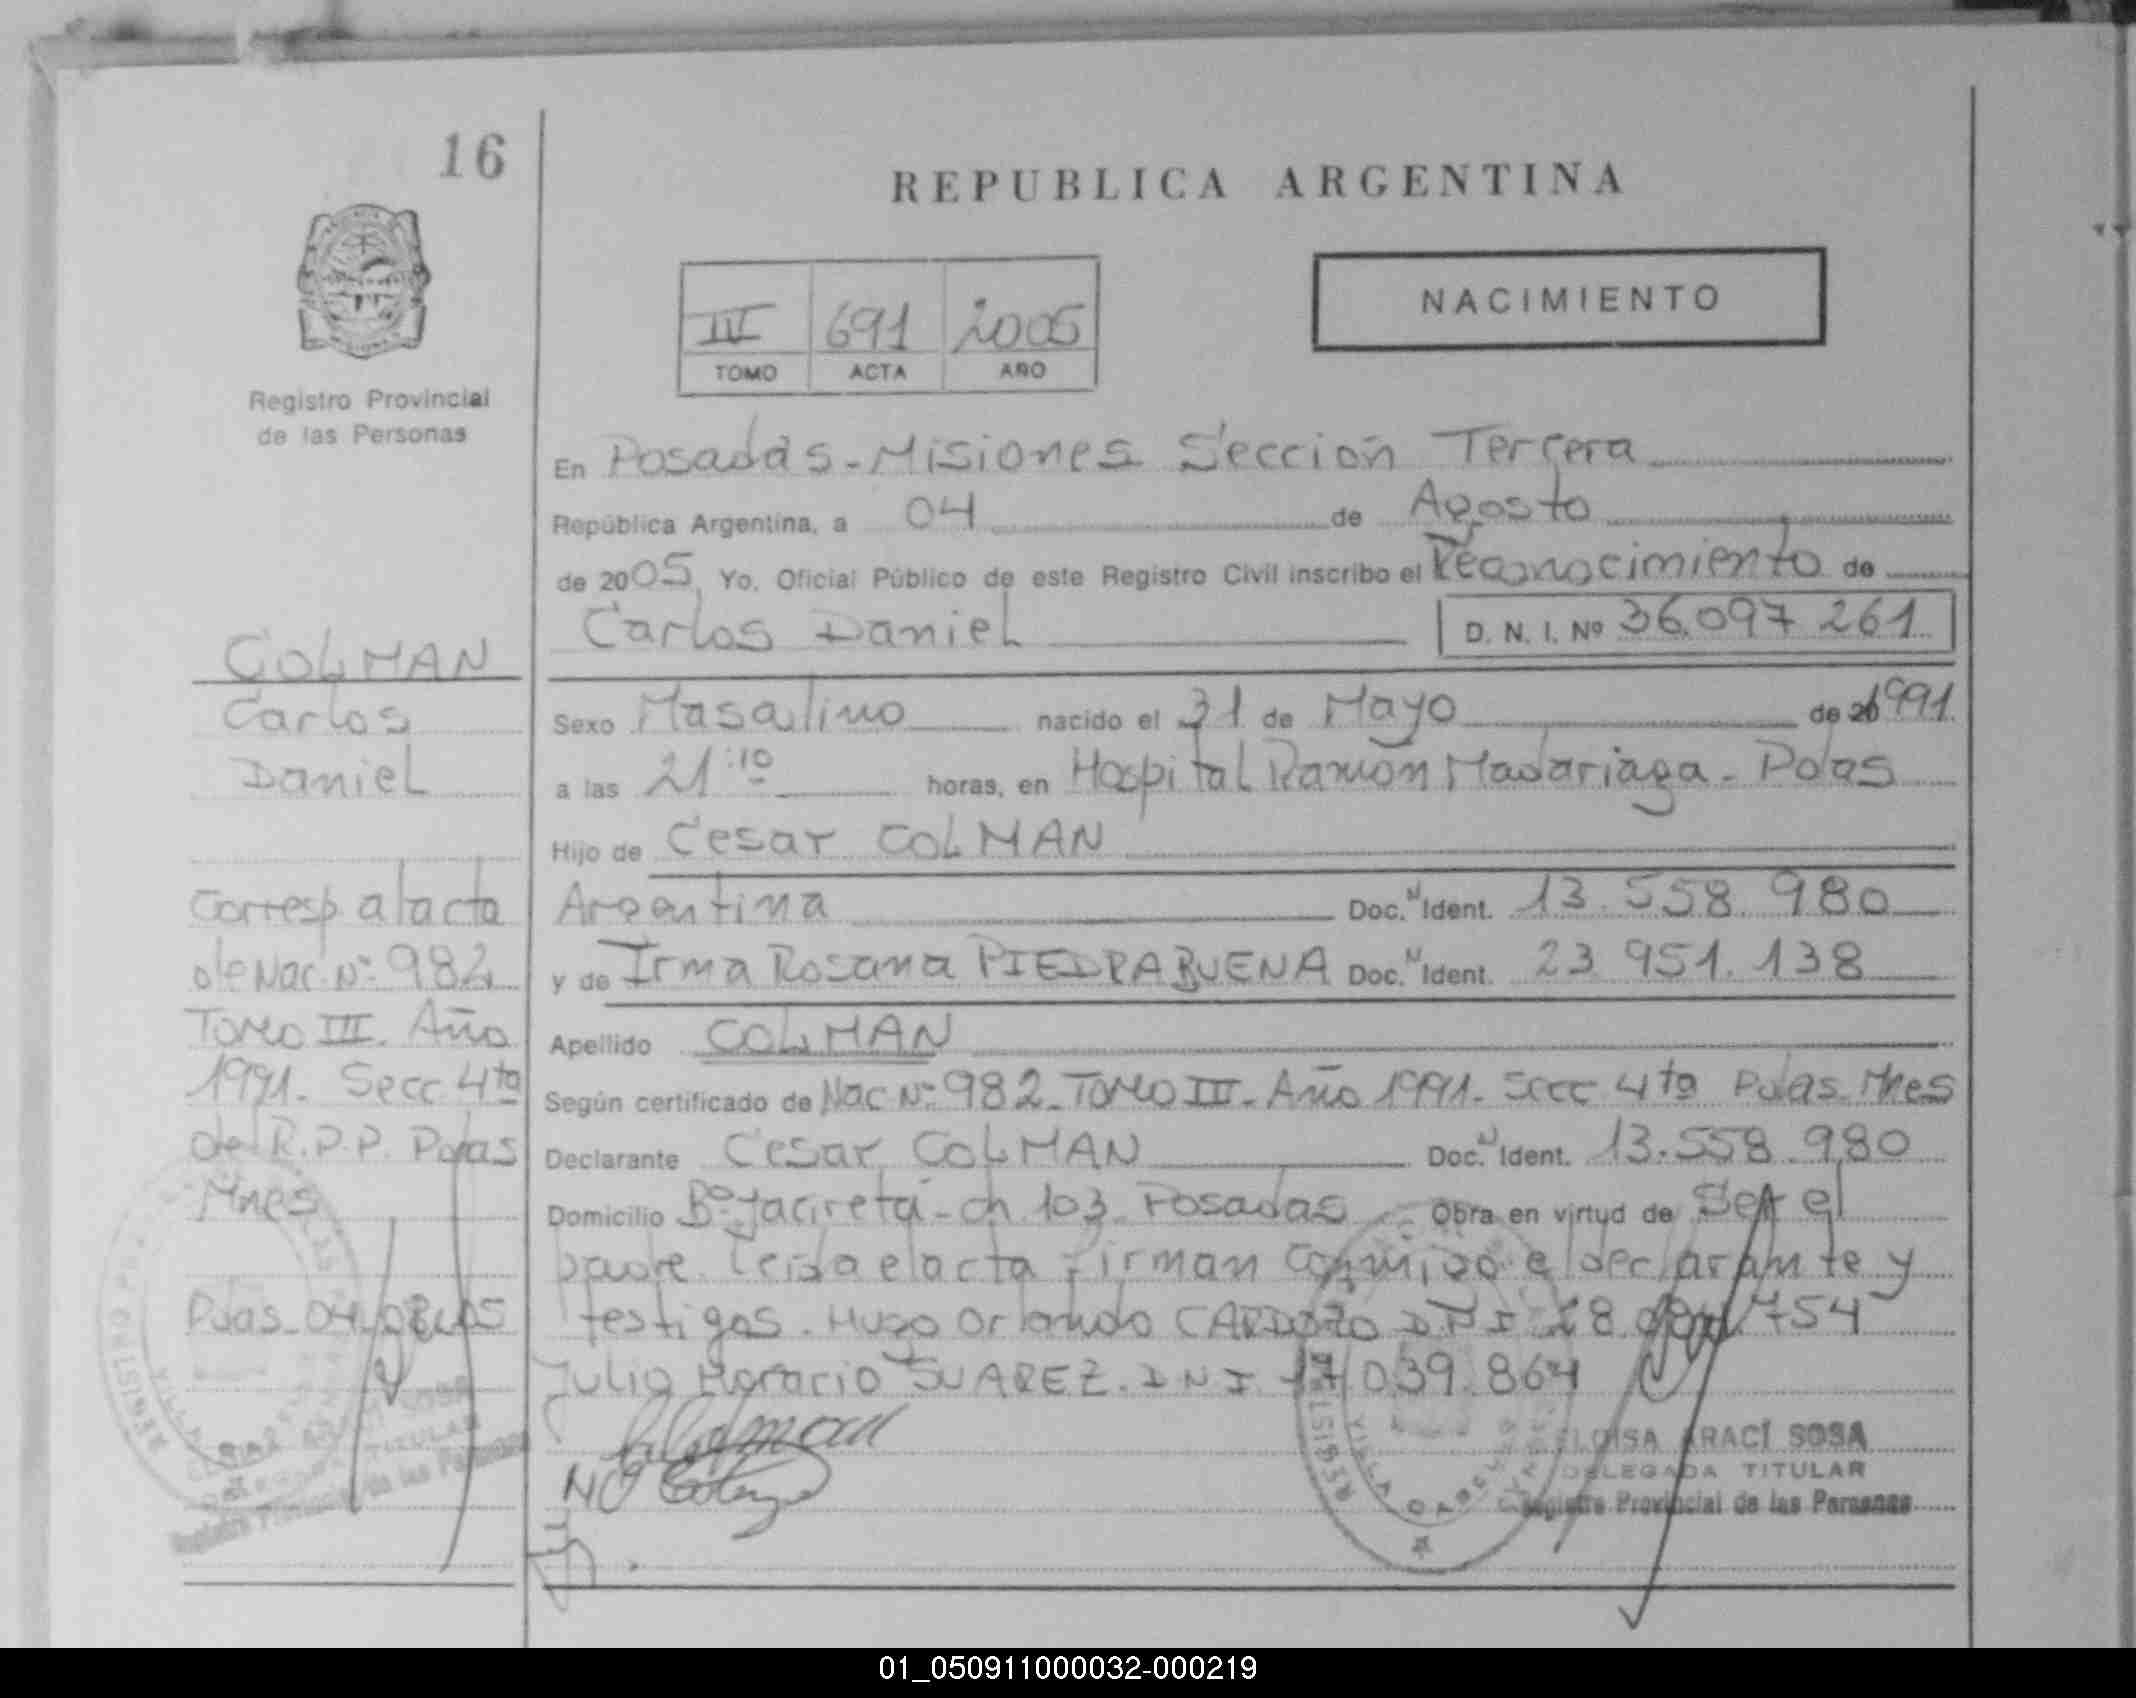 16
REPUBLICA ARGENTINA
NACIMIENTO
III 691 2005
TOMO ACTA AÑO
Registro Provincial
de las Personas
En Posadas-Misiones Sección Tercera
República Argentina, a 04 de Agosto
de 2005, Yo, Oficial Público de este Registro Civil inscribo el Reconocimiento de
Carlos Daniel D. N. I. Nº 36.097 261
Sexo Masculino nacido el 31 de Mayo de 1991.
a las 21:10 horas, en Hospital Ramón Madariaga - Pdas
Hijo de Cesar COLMAN
Argentina Doc. N Ident. 13.558.980
y de Irma Rosana PIEDRABUENA Doc. N Ident. 23.951.138
Apellido COLMAN
Según certificado de Nac Nº 982-Tomo III-Año 1991-Secc 4ta Pdas. Mnes
Declarante Cesar COLMAN Doc. N Ident. 13.558.980
Domicilio Bº Yacireta - ch 103 Posadas Obra en virtud de Ser el
padre. Leida el acta firman conmigo el declarante y
testigos. Hugo Orlando CARDOZO D.N.I 754
Julio Horacio SUAREZ. D N I 17 039.864
COLMAN
Carlos
Daniel
Corresp al acta
de Nac. Nº 982
Tomo III. Año
1991. Secc 4ta
del R.P.P. Pdas
Mnes
Pdas-04/08/05
ELOISA ARACÍ SOSA
DELEGADA TITULAR
Registro Provincial de las Personas
TITULAR
Registro Provincial de las Personas
01_050911000032-000219